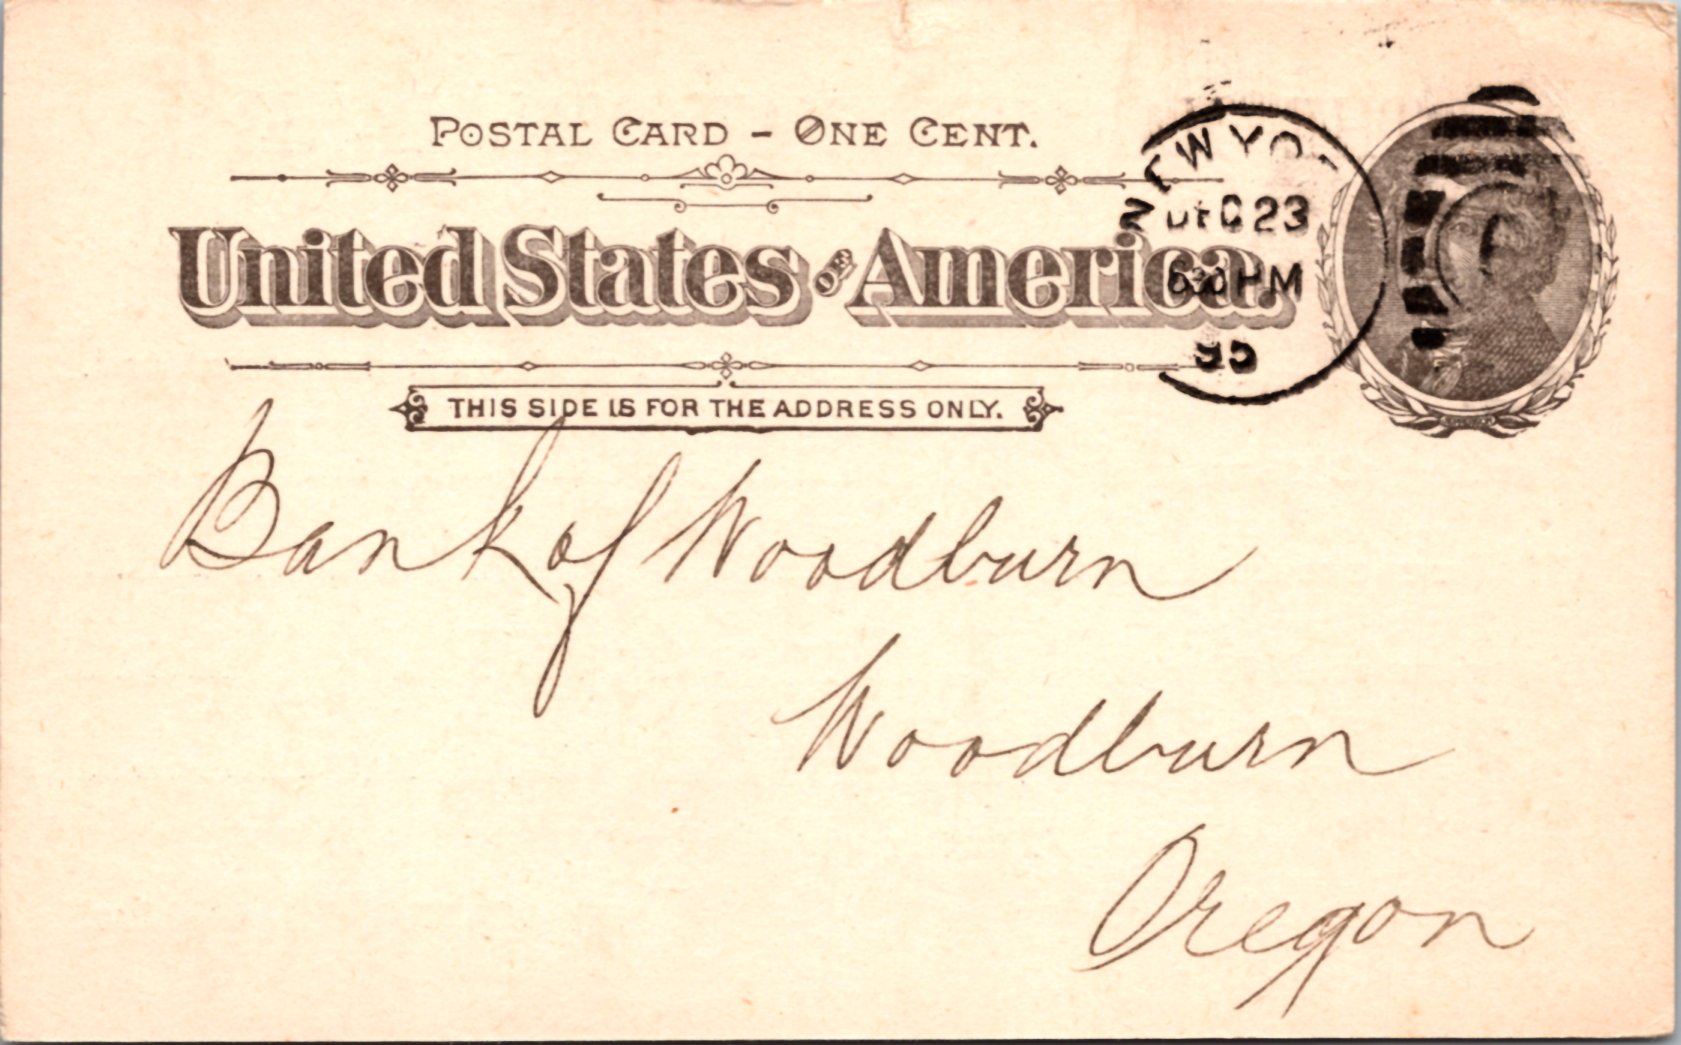 POSTAL CARD - ONE CENT.
United States of America.
THIS SIDE IS FOR THE ADDRESS ONLY.
NEW YO
DEC 23
630 PM
95
Bank of Woodburn
Woodburn
Oregon